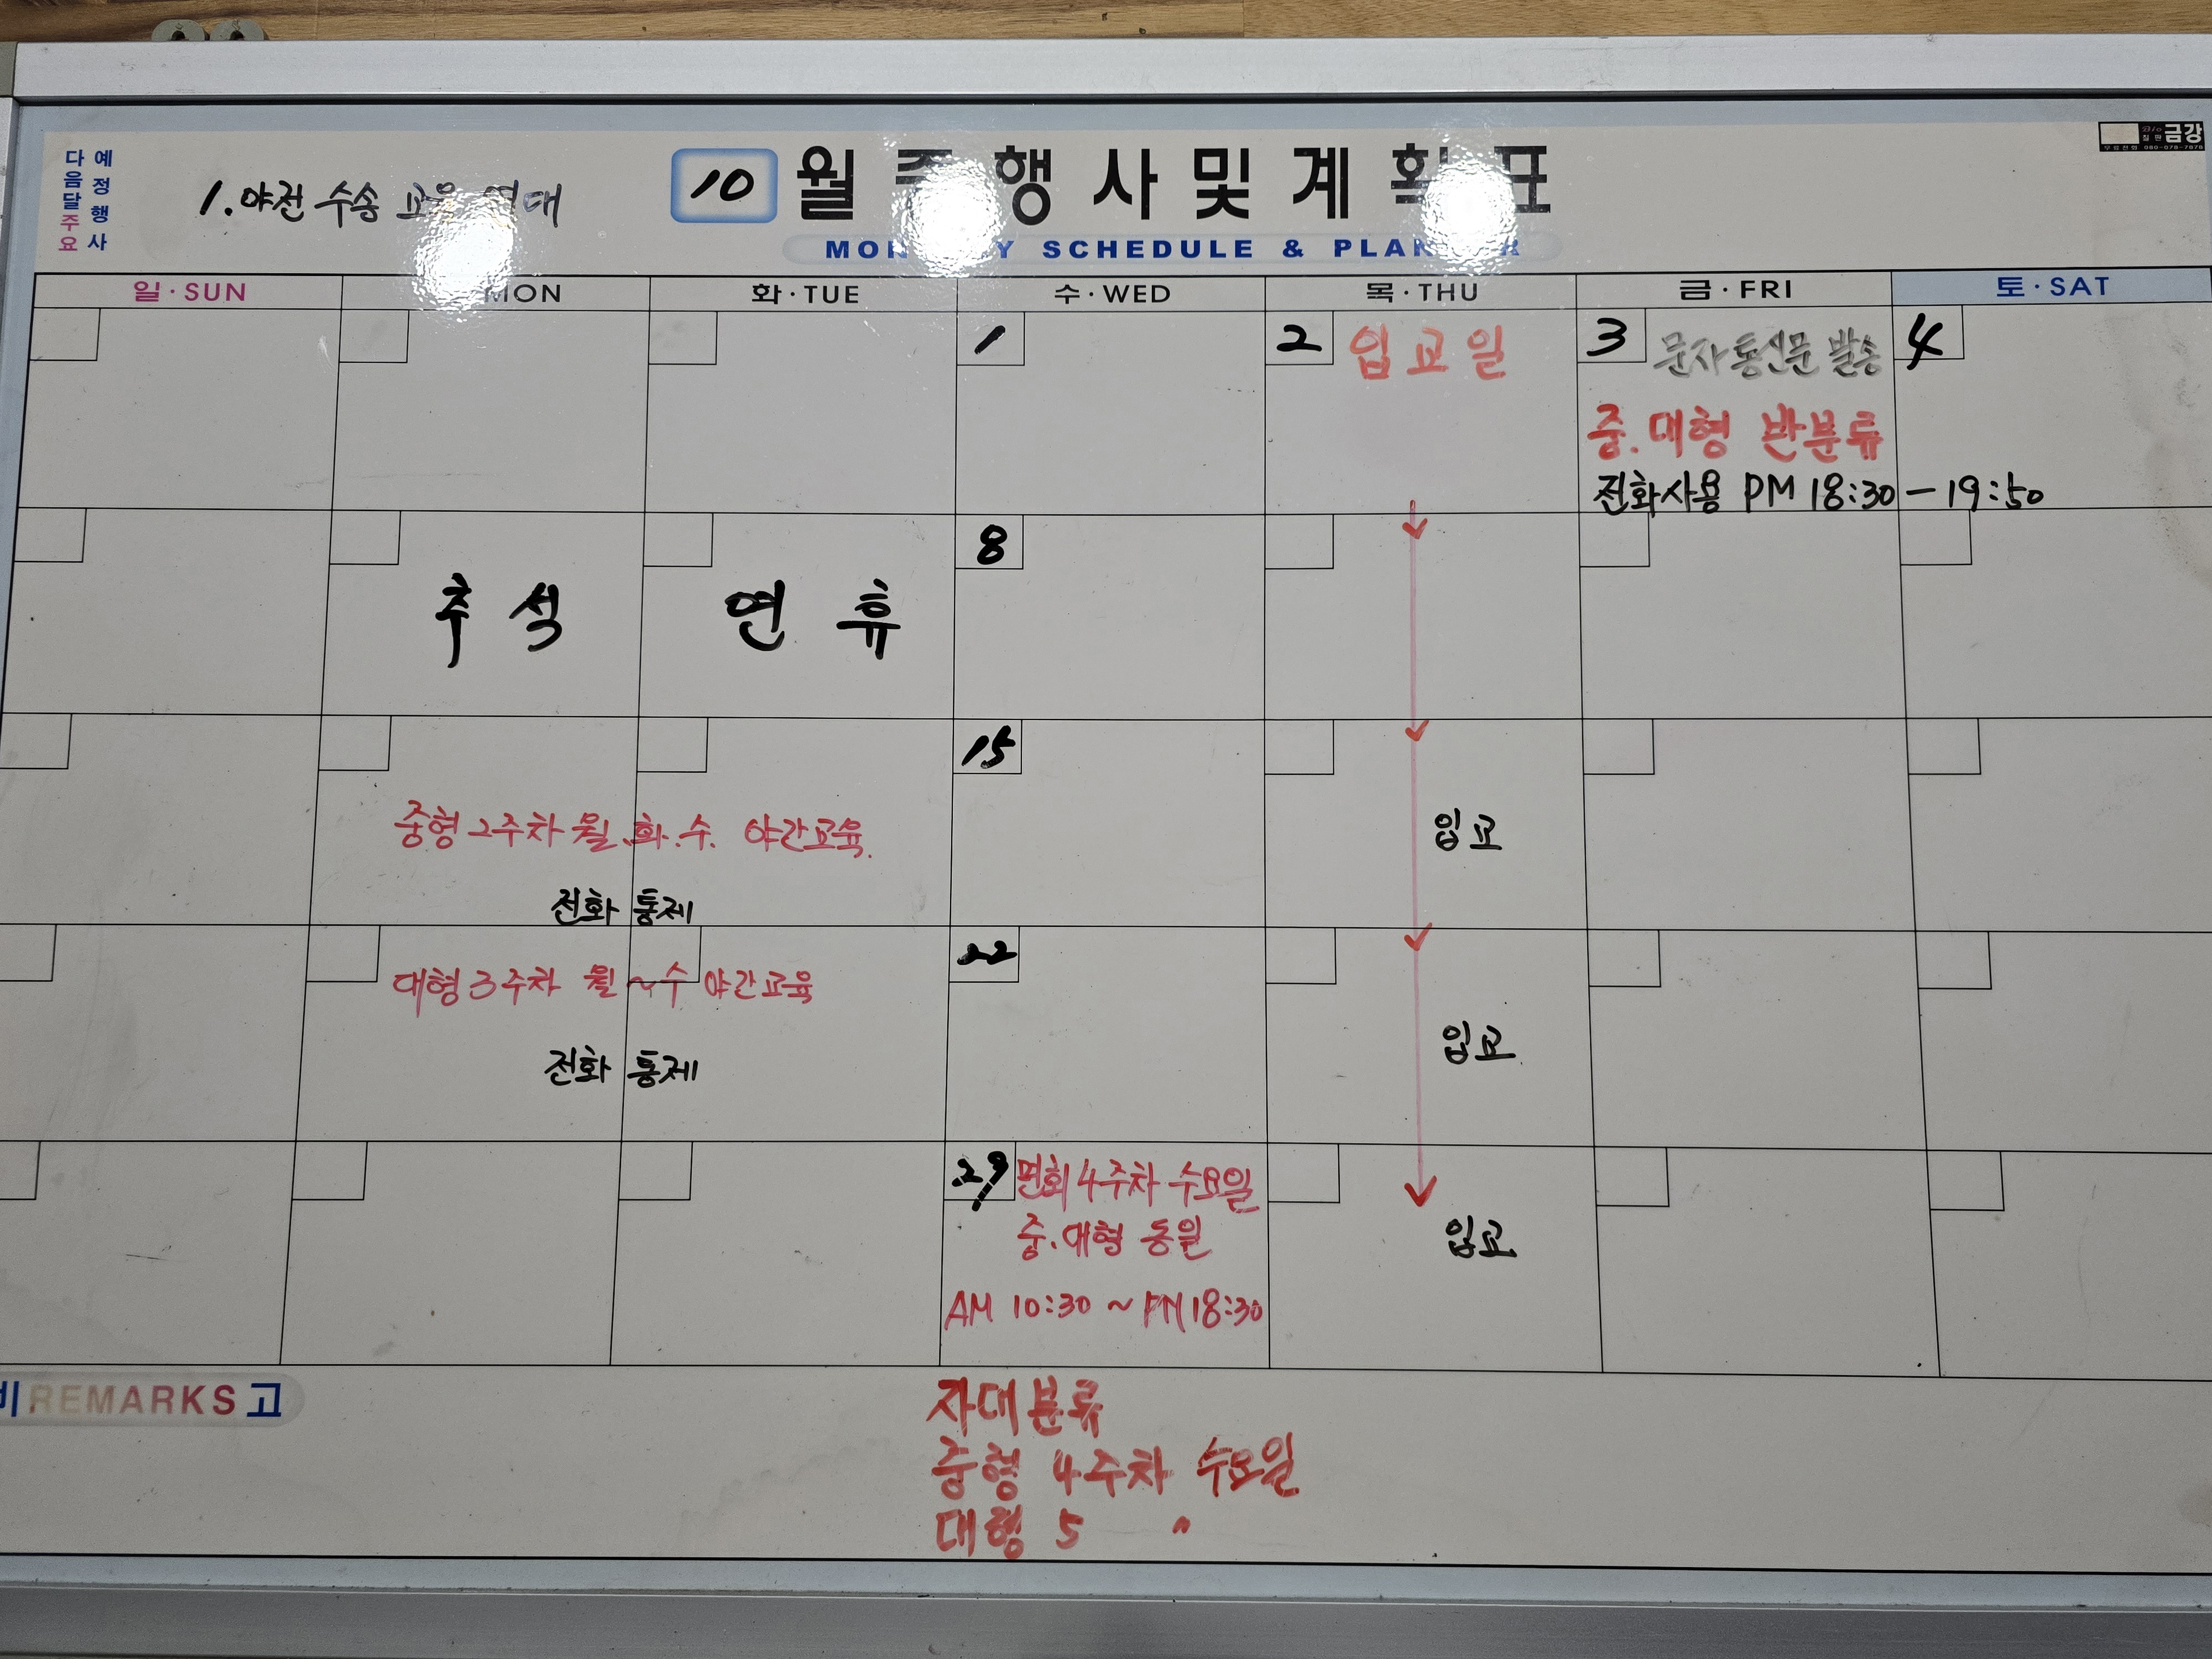 다음달 주요
예정행사
1. 야전 수송 교육 연대
10 월 행사및계획표
SCHEDULE & PLANNER
금강
일·SUN
MON
화·TUE
수·WED
목·THU
금·FRI
토·SAT
1
2 입교일
3 문자통신문 발송
4
중.대형 반분류
전화사용 PM 18:30 - 19:50
8
추석 연휴
15
중형 2주차 월.화.수. 야간교육.
입교
전화 통제
22
대형 3주차 월~수 야간교육
입교
전화 통제
29 면회 4주차 수요일
중.대형 동일
입교
AM 10:30 ~ PM 18:30
비 REMARKS 고
자대분류
중형 4주차 수요일
대형 5 〃